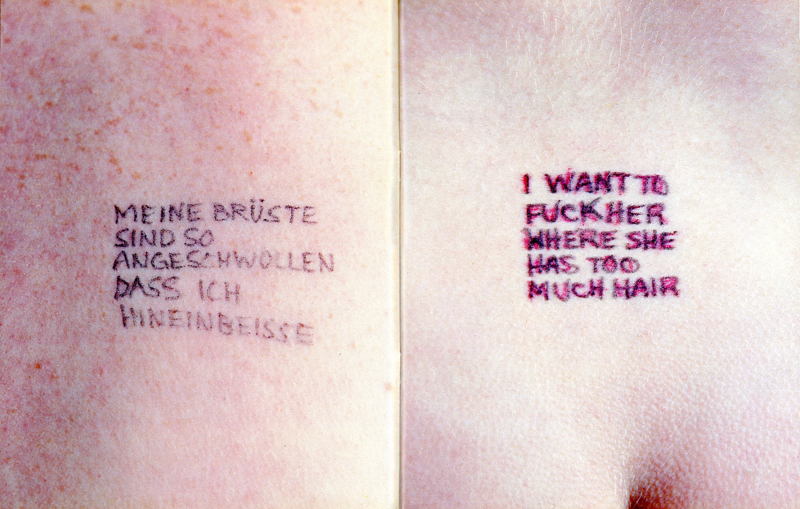 MEINE BRÜSTE
SIND SO
ANGESCHWOLLEN
DASS ICH
HINEINBEISSE
I WANT TO
FUCK HER
WHERE SHE
HAS TOO
MUCH HAIR